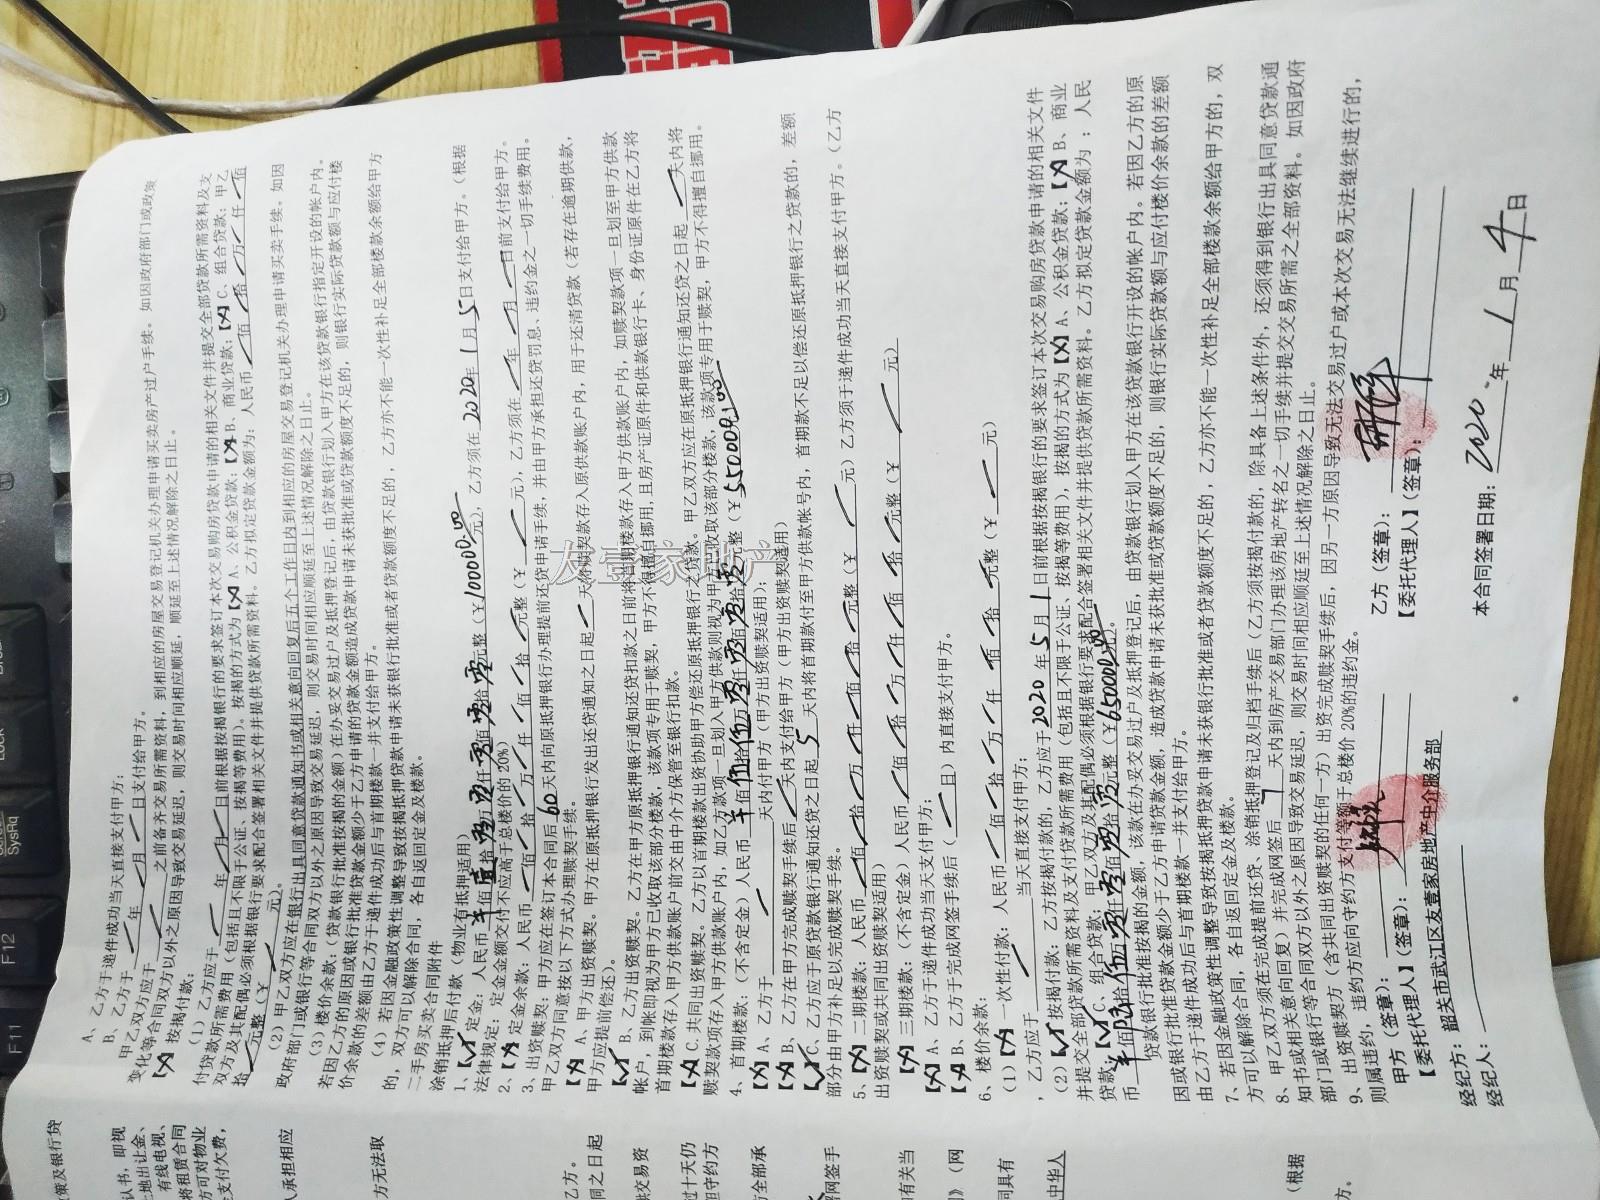 A、乙方于递件成功当天直接支付甲方；
B、乙方于 年 月 日支付给甲方。
甲乙双方应于 之前备齐交易所需资料，到相应的房屋交易登记机关办理申请买卖房产过户手续。如因政府部门或政策
变化等合同双方以外之原因导致交易延迟，则交易时间相应顺延，顺延至上述情况解除之日止。
【×】按揭付款：
（1）乙方应于 年 月 日前根据按揭银行的要求签订本次交易购房贷款申请的相关文件并提交全部贷款所需资料及支
付贷款所需费用（包括且不限于公证、按揭等费用）。按揭的方式为【×】A、公积金贷款；【×】B、商业贷款；【×】C、组合贷款；甲乙
双方及其配偶必须根据银行要求配合签署相关文件并提供贷款所需资料。乙方拟定贷款金额为：人民币 佰 拾 万 仟 佰
拾 元整（￥ 元）。
（2）甲乙双方应在银行出具同意贷款通知书或相关意向回复后五个工作日内到相应的房屋交易登记机关办理申请买卖手续。如因
政府部门或银行等合同双方以外之原因导致交易延迟，则交易时间相应顺延至上述情况解除之日止。
（3）楼价余款：（贷款银行批准按揭的金额）在办妥交易过户及抵押登记后，由贷款银行划入甲方在该贷款银行指定开设的帐户内。
若因乙方的原因或银行批准贷款金额少于乙方申请的贷款金额造成贷款申请未获批准或贷款额度不足的，则银行实际贷款额与应付楼
价余款的差额由乙方于递件成功后与首期楼款一并支付给甲方。
（4）若因金融政策性调整导致按揭抵押贷款申请未获银行批准或者贷款额度不足的，乙方亦不能一次性补足全部楼款余额给甲方
的，双方可以解除合同，各自返回定金及楼款。
二手房买卖合同附件
涂销抵押后付款（物业有抵押适用）
1、【✓】定金：人民币 羊 佰 壹 拾 零 万 零 仟 零 佰 零 拾 零 元整（￥100000.00元），乙方须在 2020 年 1 月 5 日支付给甲方。（根据
法律规定：定金金额交付不应高于总楼价的20%）
2、【×】定金余款：人民币 佰 拾 万 仟 佰 拾 元整（￥ 元），乙方须在 年 月 日前支付给甲方。
3、出资赎契：甲方应在签订本合同后 60 天内向原抵押银行办理提前还贷申请手续，并由甲方承担还贷罚息、违约金之一切手续费用。
甲乙双方同意按以下方式办理赎契手续。
【×】A、甲方出资赎契。甲方在原抵押银行发出还贷通知之日起 天将赎契款存入原供款账户内，用于还清贷款（若存在逾期供款，
甲方应提前偿还）。
【✓】B、乙方出资赎契。乙方在甲方原抵押银行通知还贷扣款之日前将首期楼款存入甲方供款账户内，如赎契款项一旦划至甲方供款
帐户，到帐即视为甲方已收取该部分楼款，该款项专用于赎契，甲方不得擅自挪用，且房产证原件和供款银行卡、身份证原件在乙方将
首期楼款存入甲方供款账户前交由中介方保管至银行扣款。
【×】C.共同出资赎契。乙方以首期楼款出资协助甲方偿还原抵押银行之贷款。甲乙双方应在原抵押银行通知还贷之日起 天内将
赎契款项存入甲方供款账户内，如乙方款项一旦划入甲方供款则视为甲方已收取该部分楼款，该款项专用于赎契，甲方不得擅自挪用。
4、首期楼款：（不含定金）人民币 羊 佰 伍 拾 伍 万 零 仟 零 佰 零 拾 零 元整（￥550000.00
【×】A、乙方于 天内付甲方（甲方出资赎契适用）；
【×】B、乙方在甲方完成赎契手续后 天内支付给甲方（甲方出资赎契适用）
【✓】C、乙方应于原贷款银行通知还贷之日起 5 天内将首期款付至甲方供款帐号内，首期款不足以偿还原抵押银行之贷款的，差额
部分由甲方补足以完成赎契手续。
5、【×】二期楼款：人民币 佰 拾 万 仟 佰 拾 元整（￥ 元）乙方须于递件成功当天直接支付甲方。（乙方
出资赎契或共同出资赎契适用）
【×】三期楼款：（不含定金）人民币 佰 拾 万 仟 佰 拾 元整（￥ 元）
【×】A、乙方于递件成功当天支付甲方；
【×】B、乙方于完成网签手续后（ 日）内直接支付甲方。
6、楼价余款：
（1）【×】一次性付款：人民币 佰 拾 万 仟 佰 拾 元整（￥ 元）
，乙方应于 当天直接支付甲方；
（2）【✓】按揭付款：乙方按揭付款的，乙方应于 2020 年 5 月 1 日前根据按揭银行的要求签订本次交易购房贷款申请的相关文件
并提交全部贷款所需资料及支付贷款所需费用（包括且不限于公证、按揭等费用），按揭的方式为【×】A、公积金贷款；【×】B、商业
贷款；【✓】C、组合贷款；甲乙双方及其配偶必须根据银行要求配合签署相关文件并提供贷款所需资料。乙方拟定贷款金额为：人民
币 羊 佰 陆 拾 伍 万 零 仟 零 佰 零 拾 零 元整（￥650000.00元）。
贷款银行批准按揭的金额，该款在办妥交易过户及抵押登记后，由贷款银行划入甲方在该贷款银行开设的帐户内。若因乙方的原
因或银行批准贷款金额少于乙方申请贷款金额，造成贷款申请未获批准或贷款额度不足的，则银行实际贷款额与应付楼价余款的差额
由乙方于递件成功后与首期楼款一并支付给甲方。
7、若因金融政策性调整导致按揭抵押贷款申请未获银行批准或者贷款额度不足的，乙方亦不能一次性补足全部楼款余额给甲方的，双
方可以解除合同，各自返回定金及楼款。
8、甲乙双方须在完成提前还贷、涂销抵押登记及归档手续后（乙方须按揭付款的，除具备上述条件外，还须得到银行出具同意贷款通
知书或相关意向回复）并完成网签后 7 天内到房产交易部门办理该房地产转名之一切手续并提交交易所需之全部资料。如因政府
部门或银行等合同双方以外之原因导致交易延迟，则交易时间相应顺延至上述情况解除之日止。
9、出资赎契方（含共同出资赎契的任何一方）出资完成赎契手续后，因另一方原因导致无法交易过户或本次交易无法继续进行的，
则属违约，违约方应向守约方支付等额于总楼价20%的违约金。
甲方（签章）： 乙方（签章）：
【委托代理人】（签章）： 【委托代理人】（签章）：
经纪方：韶关市武江区友壹家房地产中介服务部
经纪人：
本合同签署日期：2020 年 1 月 4 日
友壹家地产
策及银行贷
认书，即视
土地出让金、
有线电视、
将租赁合同
方可对物业
支付欠费，
人承担相应
方无法取
乙方。
同之日起
供交易资
过十天仍
但守约方
方全部承
署网签手
有关当
》（网
同具有
中华人
（根据
方。
F11
F12
SysRq
LOCK